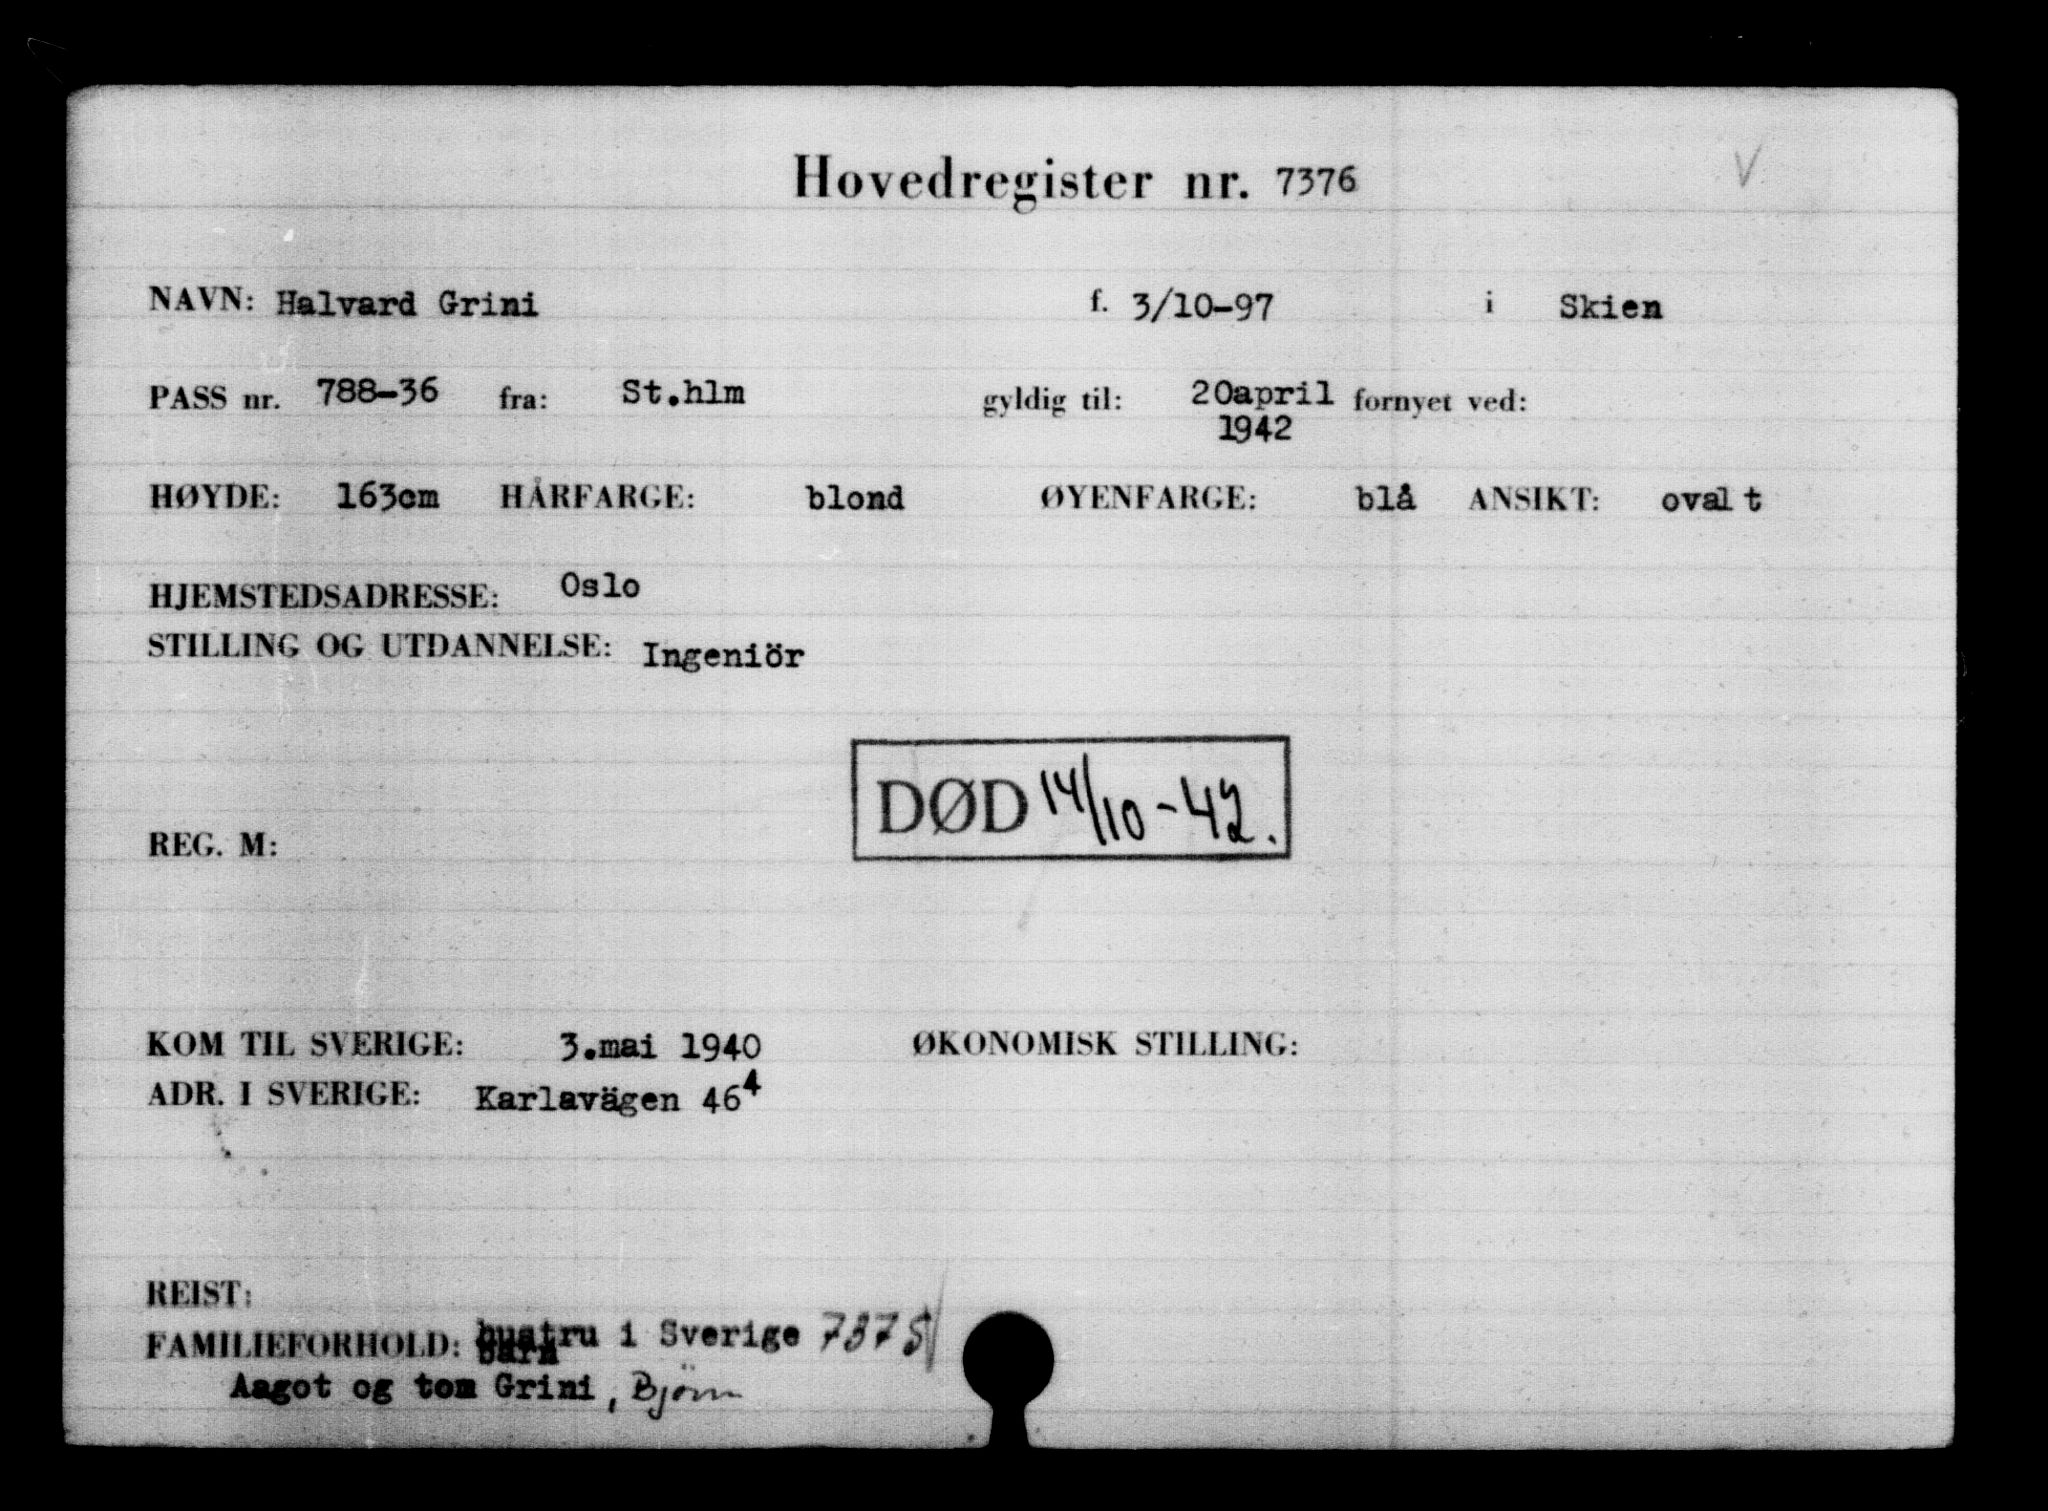 Hovedregister nr. 7376
NAVN: Halvard Grini f. 3/10-97 i Skien
PASS nr. 788-36 fra: St.hlm gyldig til: 20april fornyet ved:
1942
HØYDE: 163cm HÅRFARGE: blond ØYENFARGE: blå ANSIKT: oval t
HJEMSTEDSADRESSE: Oslo
STILLING OG UTDANNELSE: Ingeniör
DØD 14/10-42.
REG. M:
KOM TIL SVERIGE: 3.mai 1940 ØKONOMISK STILLING:
ADR. I SVERIGE: Karlavägen 46⁴
REIST:
FAMILIEFORHOLD: hustru i Sverige 7375
barn
Aagot og tom Grini, Bjørn